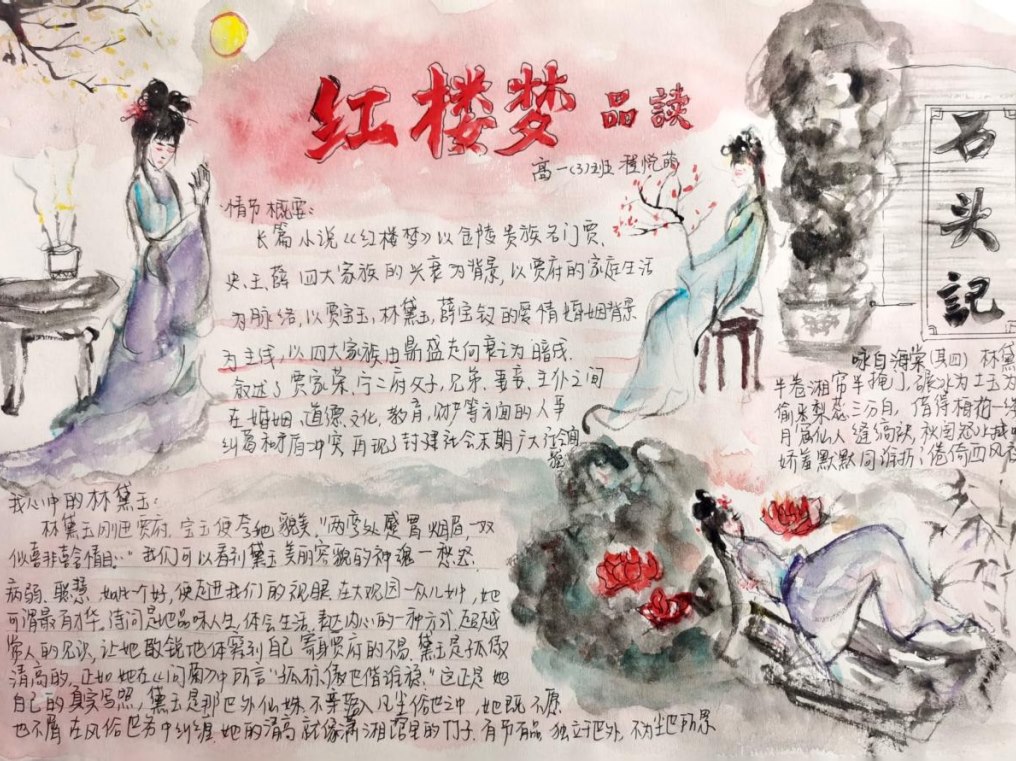 红楼梦 品读
高一(3)班 程悦萌
石头記
情节概要:
长篇小说《红楼梦》以金陵贵族名门贾、
史、王、薛四大家族的兴衰为背景,以贾府的家庭生活
为脉络,以贾宝玉、林黛玉、薛宝钗的爱情婚姻背景
为主线,以四大家族由鼎盛走向衰亡为暗线.
叙述了贾家荣、宁二府父子、兄弟、妻妾、主仆之间
在婚姻、道德、文化、教育、财产等方面的人事
纠葛和矛盾冲突 再现了封建社会末期广大社会
咏白海棠(其四) 林黛
半卷湘帘半掩门,碾冰为土玉为
偷来梨蕊三分白,借得梅花一缕
月窟仙人缝缟袂,秋闺怨
娇羞默默同谁诉;倦倚西风夜
我心中的林黛玉:
林黛玉刚进贾府,宝玉便夸她貌美,"两弯似蹙 罥烟眉,一双
似喜非喜含情目…"我们可以看到黛玉美丽容貌的神魂一愁怨.
病弱、聪慧 如此一个好,便走进我们的视眼.在大观园一众儿女中,她
可谓最有才华,诗词是她品味人生,体会生活,表达内心的一种方式.超越
常人的见识,让她敏锐地体察到自己寄身贾府的不易.黛玉是孤傲
清高的,正如她在《问菊》中所言"孤标傲世偕谁隐."这正是她
自己的真实写照,黛玉是那世外仙姝不幸落入凡尘俗世之中,她既不愿
也不屑在风俗世务中纠缠.她的清高就像潇湘馆里的竹子.有节有品 独立世外,不为尘世所累